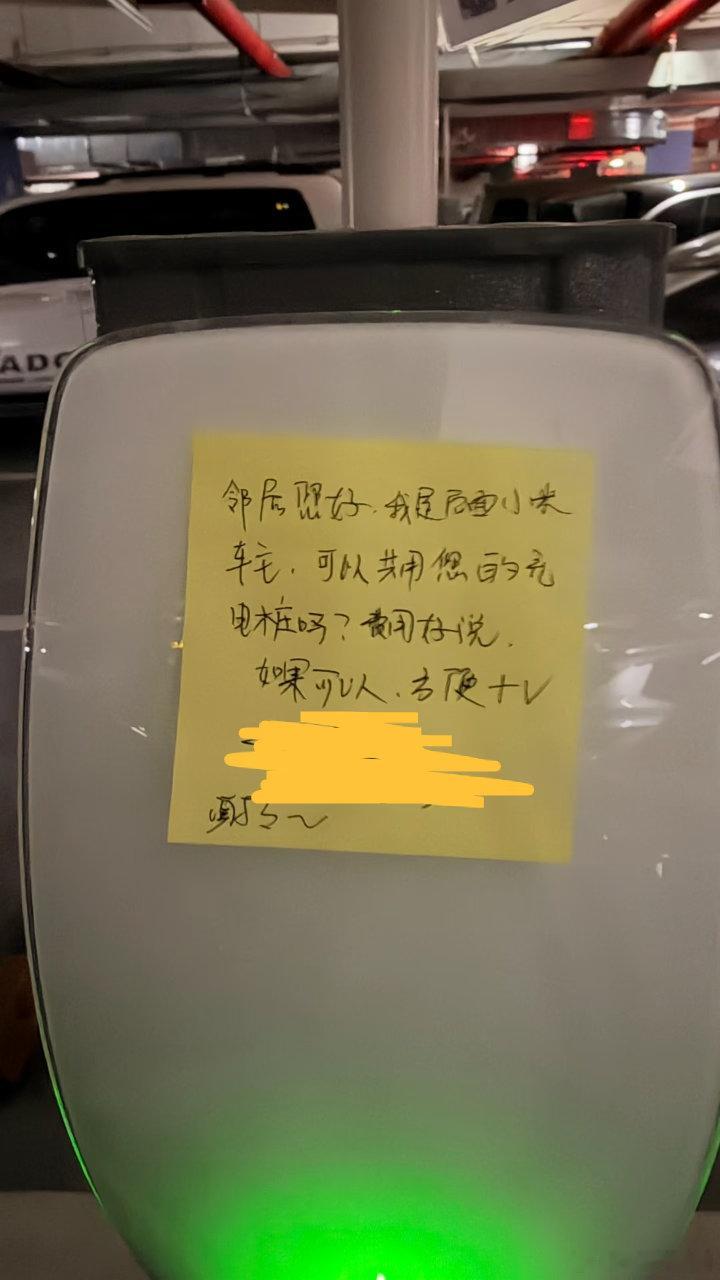 ADO
邻居您好，我是后面小米
车主，可以共用您的充
电桩吗？费用好说，
如果可以，方便+V
谢谢～